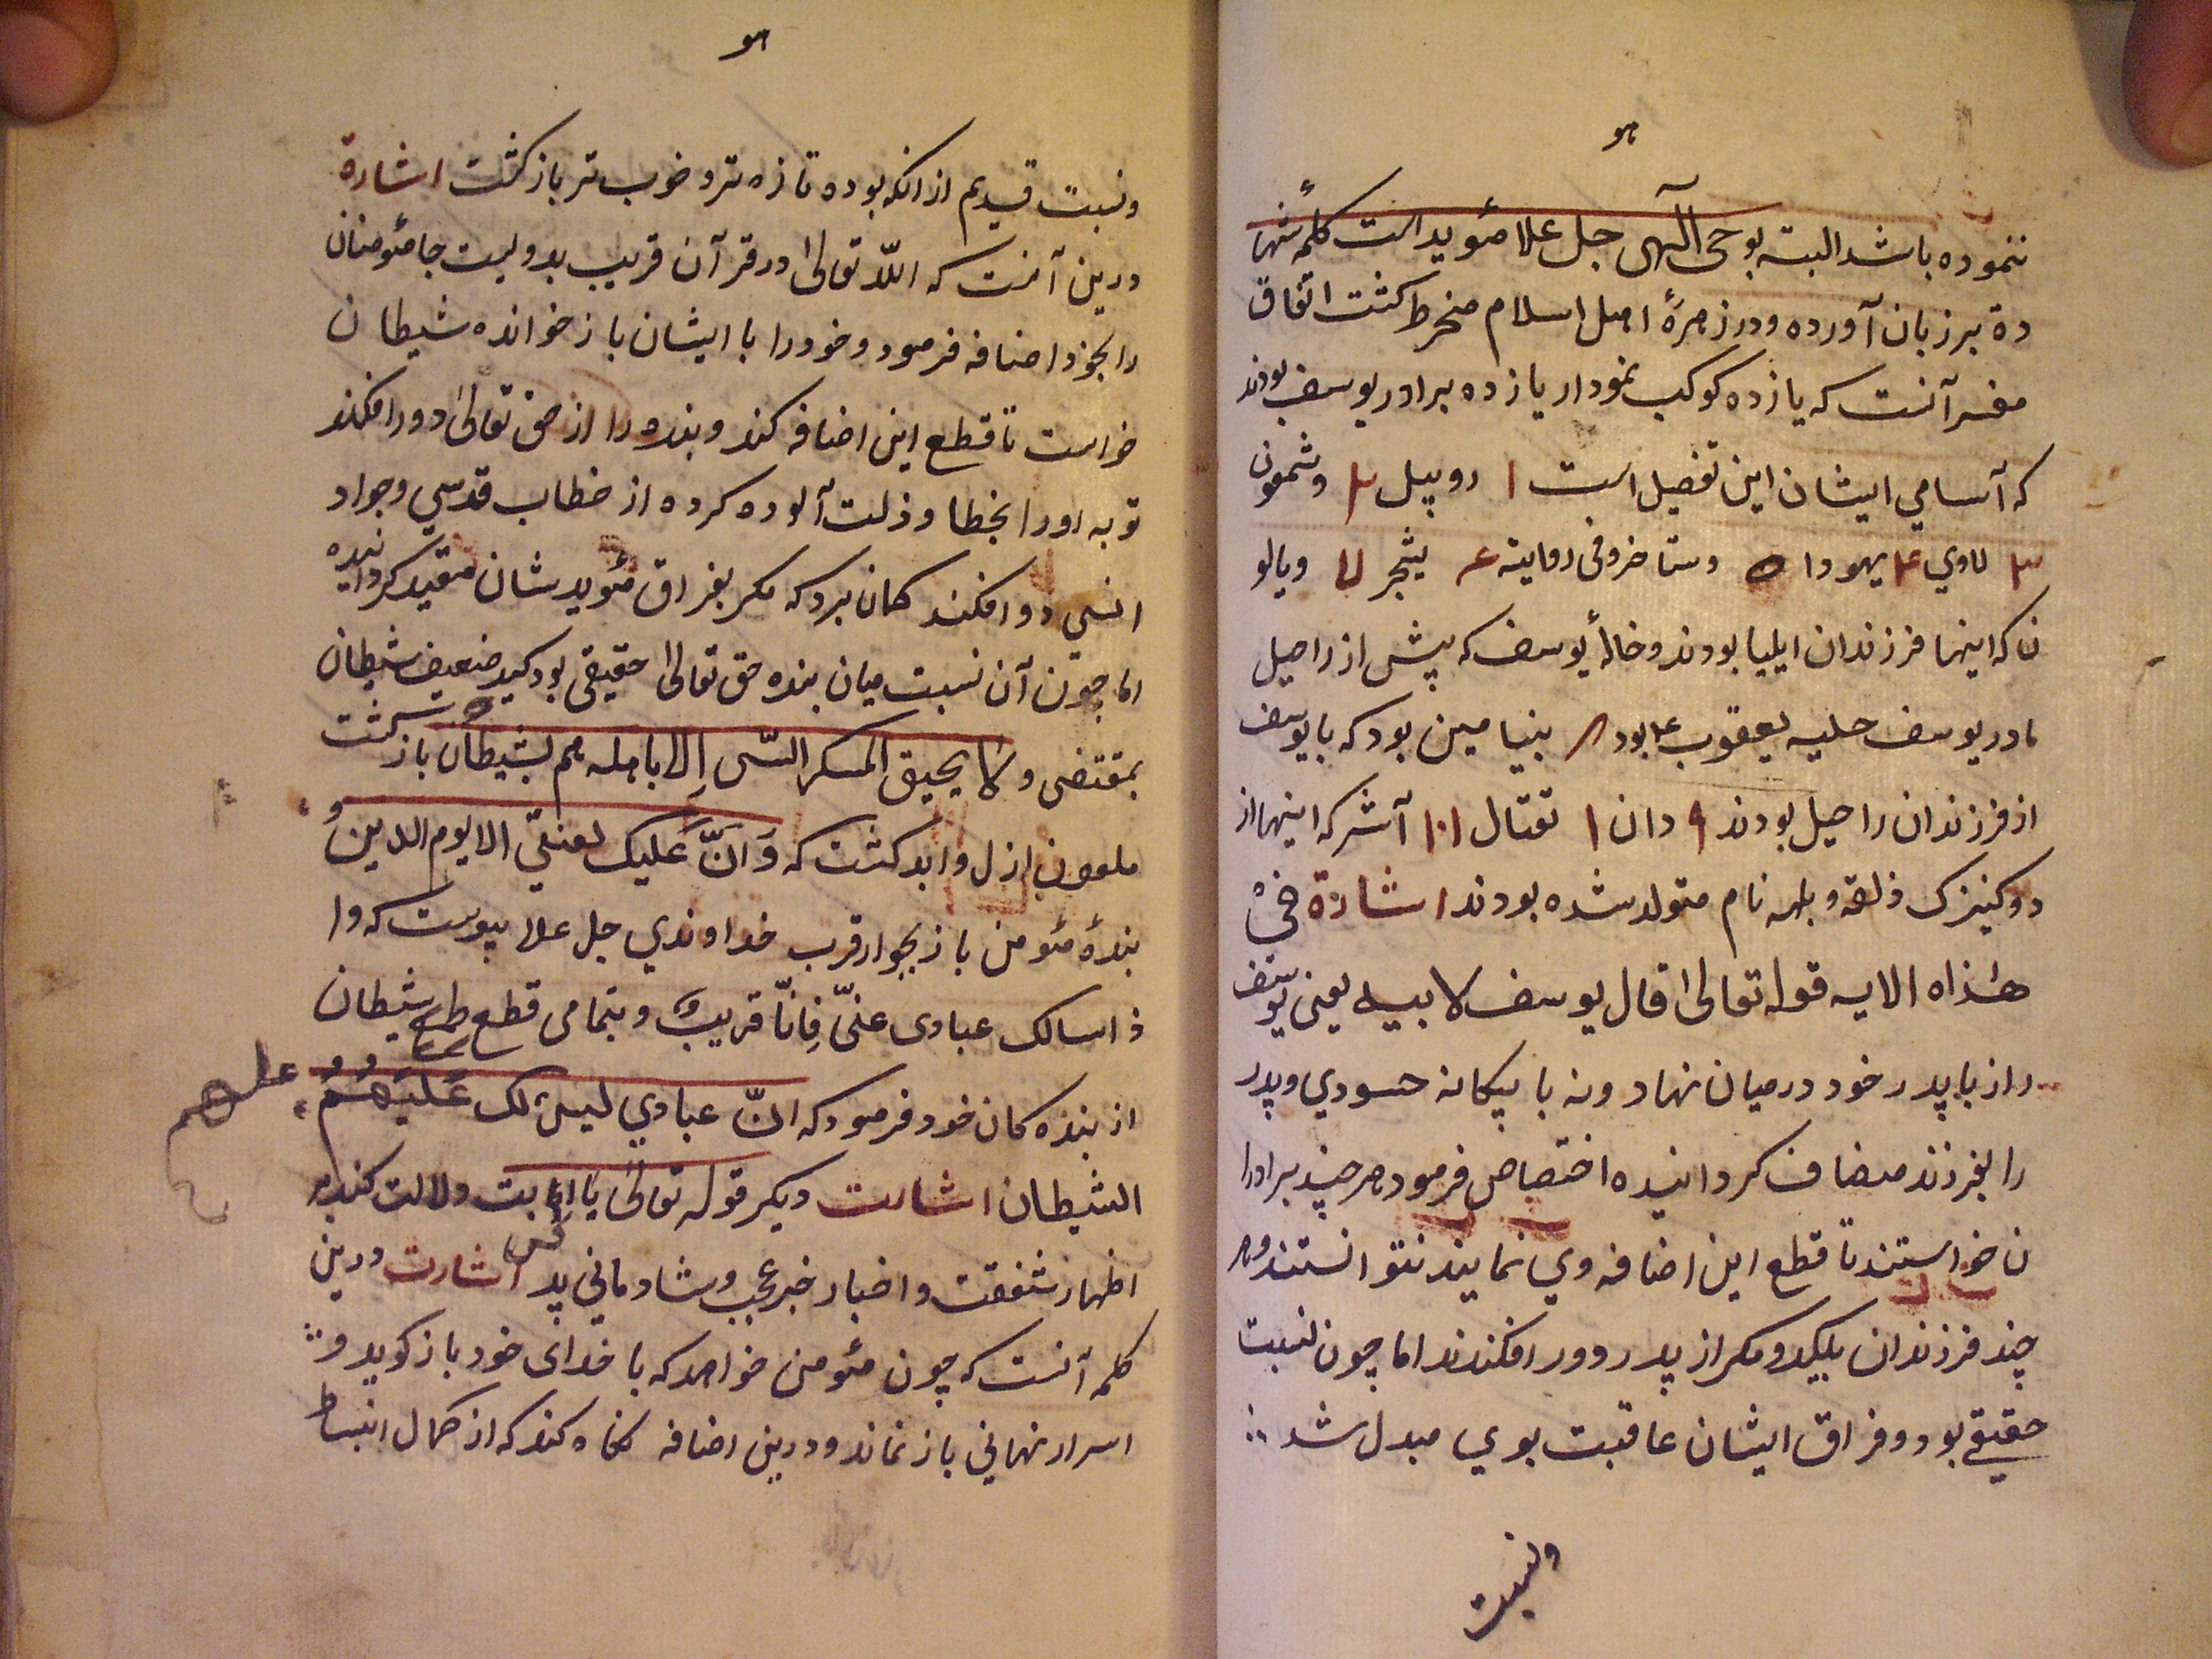 هو
ننموده باشد البته بوحی آلهی جل علا مئوید است کلمهٔ شها
دة بر زبان آورده و در زمرهٔ اهل اسلام منخرط کشت اتفاق
مفسر آنست که یازده کوکب نمودار یازده برادر یوسف بودند
که آسامي ایشان این تفصیل است ۱ روبیل ۲ وشمعون
۳ لاوي ۴ یهودا ۵ وستاخر وفی روایته ع یشجر ۷ وبالو
ن که اینها فرزندان ایلیا بودند وخالهٔ یوسف که پیش از راحیل
مادر یوسف حلیه یعقوب ع بود ۸ بنیامین بود که با یوسف
از فرزندان راحیل بودند ۹ دان ۱ تفتال ۱۱ آشر که اینها از
دو کنیزک ذلفه و بلهه نام متولد شده بودند اشارة فی
هذاه الایه قوله تعالی اقال یوسف لابیه یعنی یوسف
راز با پدر خود در میان نهاد و نه با بیکانه حسودي و پدر
را بفرزند مضاف کردانیده اختصاص فرمود هر چند برادرا
ن خواستند تا قطع این اضافه وي نمایند نتوانستند وهر
چند فرزندان بکید و مکر از پدر دور افکندند اما چون نسبت
حقیقے بود و فراق ایشان عاقبت بوي مبدل شد
ونسبت
هو
ونسبت قدیم از انکه بوده تازه تر و خوب تر باز کشت اشارة
درین آنست که اللّه تعالی در قرآن قریب بدولیست جا مئومنان
را بخود اضافه فرمود و خود را با ایشان باز خوانده شیطان
خواست تا قطع این اضافه کند و بنده را از حق تعالی دور افکند
توبه اورا بخطا و ذلت آلوده کرده از خطاب قدسي و جواد
انسي دور افکند کمان برد که مکر بفراق مئویدشان مقید کردانیده
اما چون آن نسبت میان بنده حق تعالی حقیقی بود کید ضعیف شیطان
بمقتضی ولا یحیق المکر السّی اِلا باهله هم بشیطان باز کشت
ملعون ازل وابد کشت که وَانَّ عَلیک لعنتی الا یوم الدین وُ
بندهٔ مئومن باز بجوار قرب خداوندي جل علا پیوست که وا
ذا سالک عبادی عنّی فِانّا قریبٌ و بتمامی قطع طمع شیطان
از بنده کان خود فرمود که انّ عبادي لیس لک عَلَیْهُمُ علهم
الشیطان اشارت دیکر قوله تعالی یا ابت دلالت کنده
اظهار شفقت و اخبار خبر عجب و شادمانی پدر اشارت درین
کلمه آنست که چون مئومن خواهد که با خدای خود باز کوید و
اسرار نهانی باز نماند و درین اضافه کناه کند که از کمال انبساط